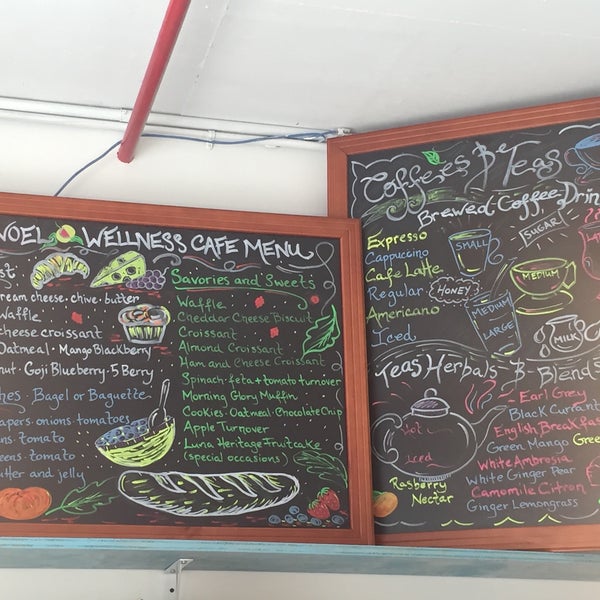 NOEL WELLNESS CAFE MENU
cream cheese · chive · butter
Waffle
cheese croissant
Oatmeal · Mango Blackberry
Goji Blueberry · 5 Berry
Bagel or Baguette
capers · onins tomatoes
onins · tomato
greens · tomato
butter and jelly
Savories and Sweets
Waffle
Cheddar Cheese Biscuit
Croissant
Almond Croissant
Ham and Cheese Croissant
Spinach · feta + tomato turnover
Morning Glory Muffin
Cookies · Oatmeal · Chocolate Chip
Apple Turnover
Luna Heritage Fruitcake
(special occasions)
Coffees & Teas
Brewed Coffee Drin
Expresso
Cappuccino
Cafe Latte
Regular
Americano
Iced
SMALL
SUGAR
MEDIUM
HONEY
MEDIUM
LARGE
MILK
Teas Herbals & Blends
Hot
Iced
Rasberry
Nectar
Earl Grey
Black Currant
English Breakfas
Green Mango
White Ambrosia
White Ginger Pear
Camomile Citron
Ginger Lemongrass